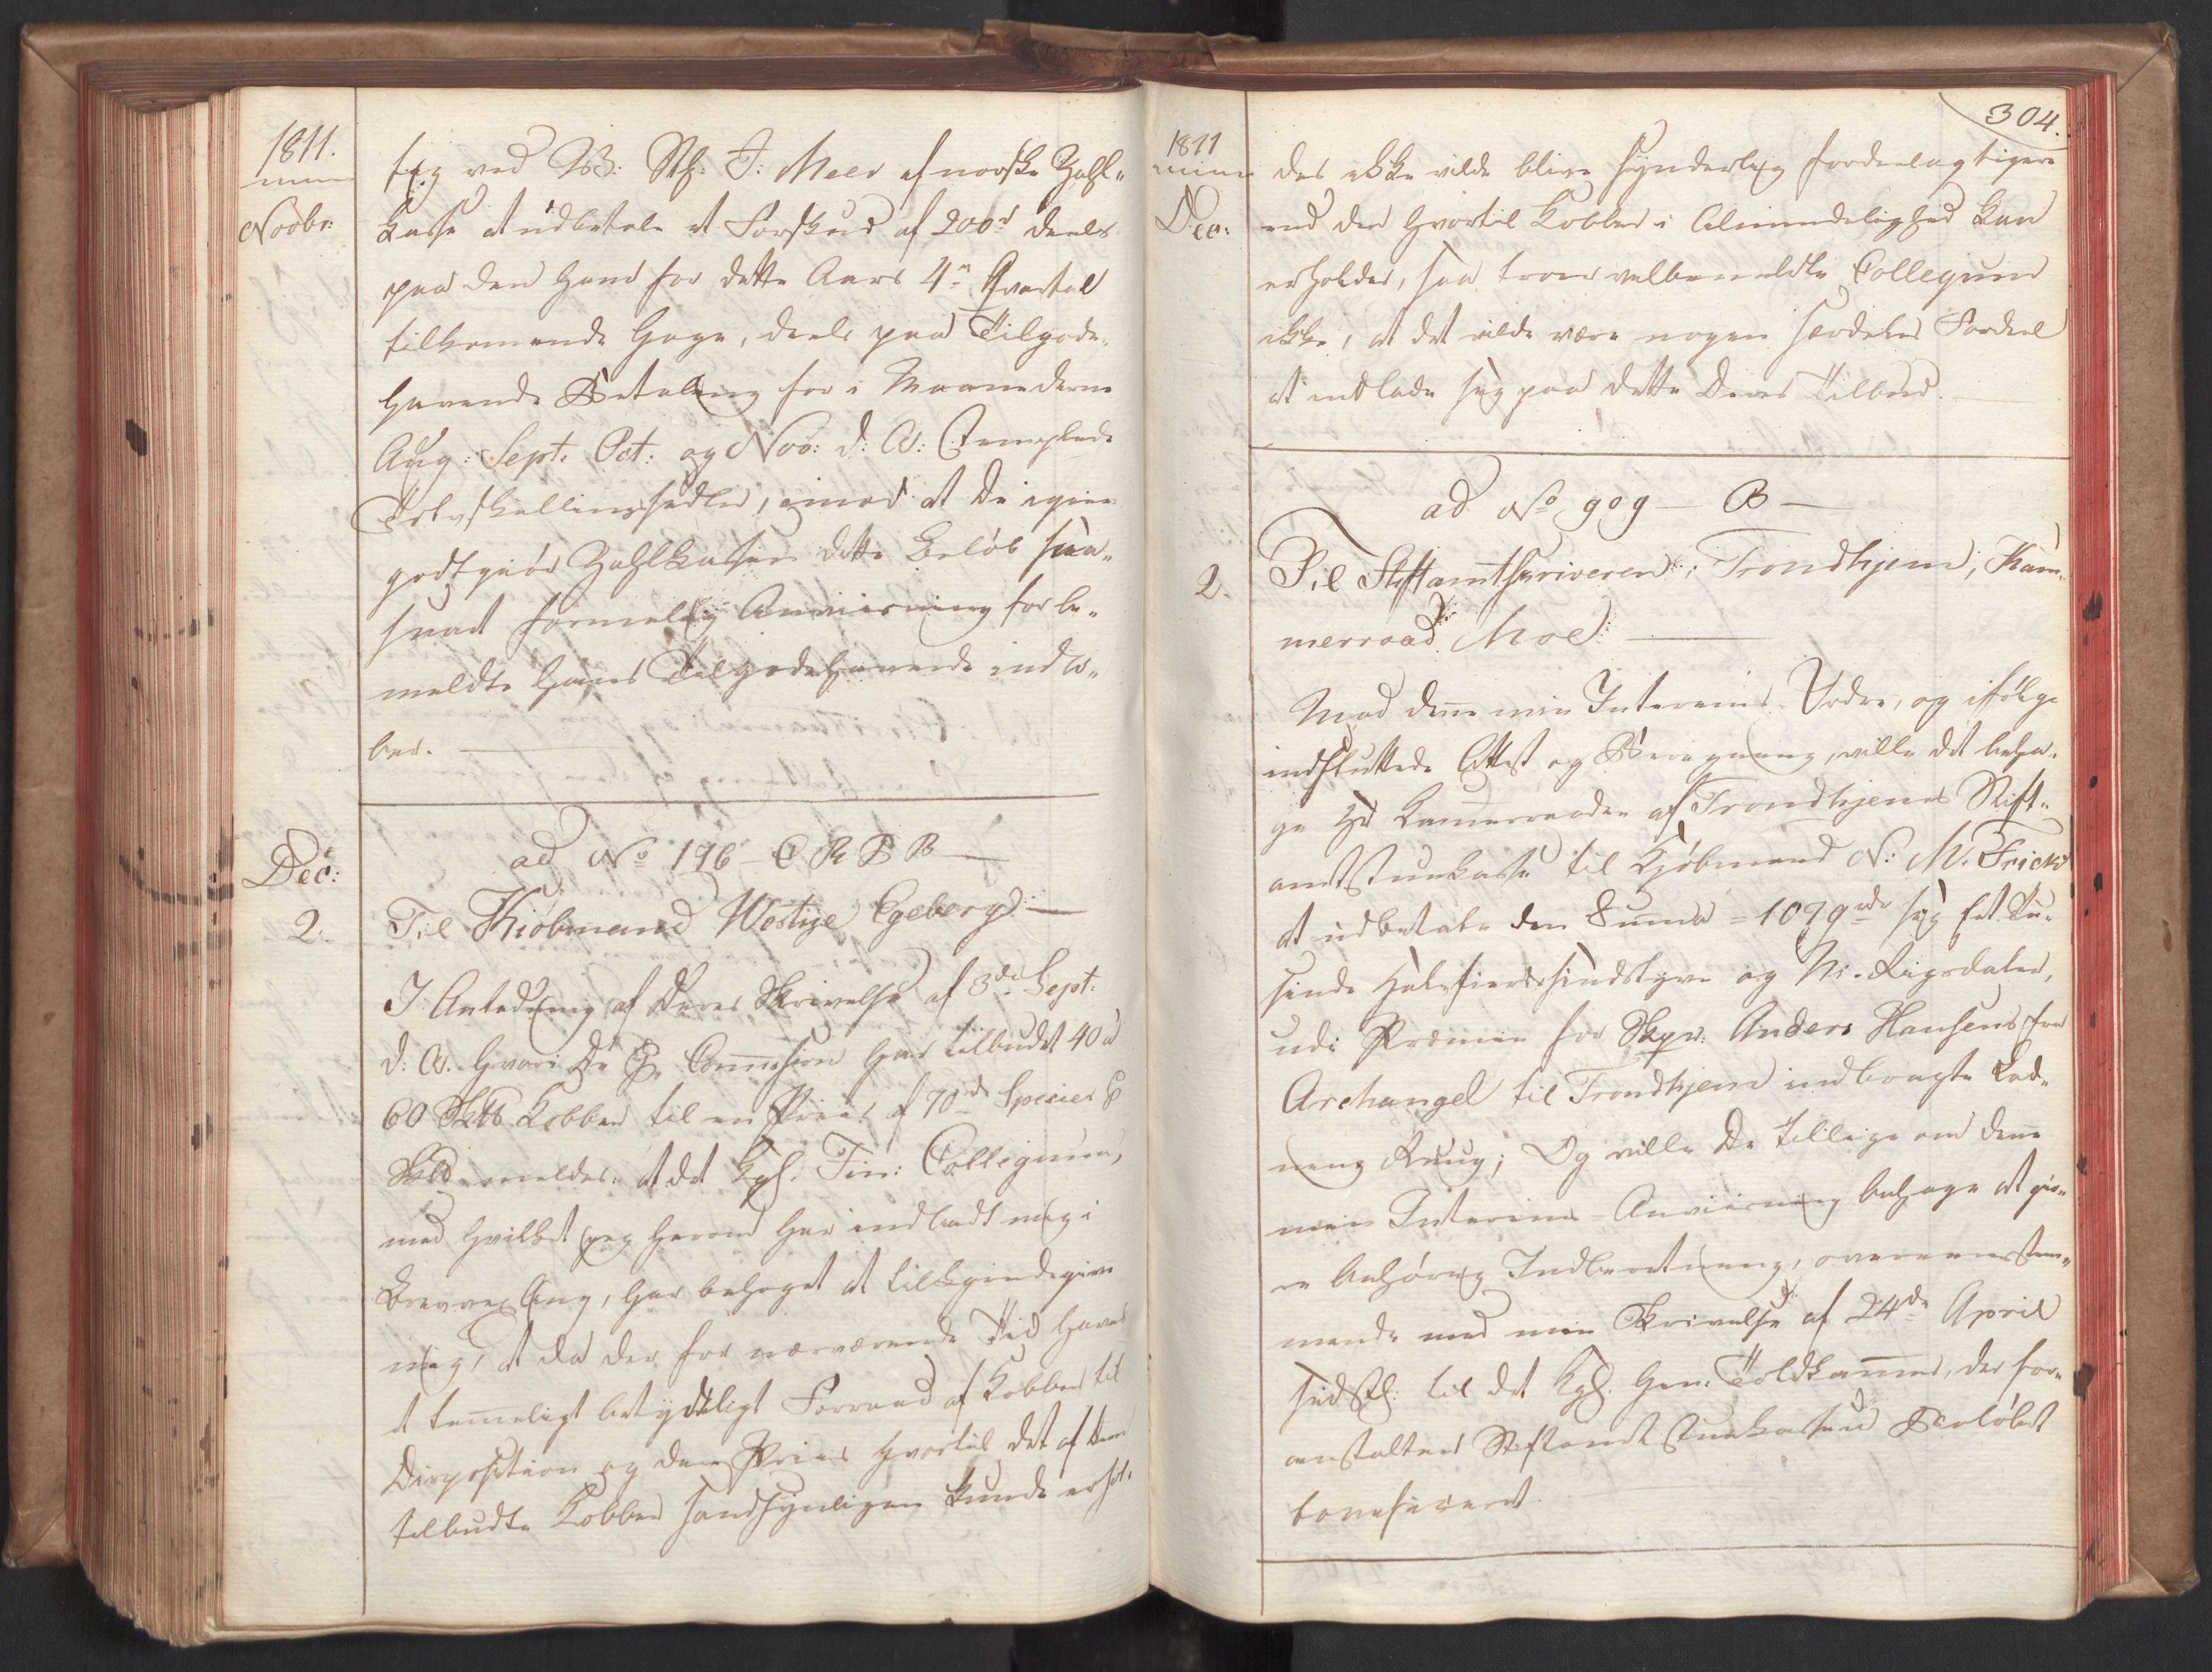 1811.
Novbr:
ved W: Sth: J: Meer af norske Zahl-
kasse at udbetale et Forskud af 200rd deels
paa den ham for dette Aars 4de Qvartal
tilkommende Gage, deels paa Tilgode-
havende Betaling for i Maanederne
Aug: Sept. Oct: og Nov: d: A: stemplede
Tolvskillingssedler, imod at De igien
godtgiør Zahlkassen dette Beløb saa-
snart formelig Anviisning for be-
meldte hans Tilgodehavende indlø-
ber.
Dec:
2.
ad No 196 - C R B B -
Til Kiøbmand Westye Egeberg
I Anledning af Deres Skrivelse af 3de Sept:
d: A. hvori De Commission har tilbudt 40 à
60 Skb Kobber til en Priis af 70rd Species
Skb meldes: at det Kgl. Fin: Collegium,
med hvilket jeg herom har indladt mig i
Brevvexling, har behaget at tilkiendegive
mig, at da der for nærværende Tid haves
et temmeligt betydeligt Forraad af Kobber til
Disposition og den Priis hvortil det af Dem
tilbudte Kobber sandsynligen kunde erhol-
304.
1811
Dec:
des ikke vilde blive synderlig fordeelagtigere
end den hvortil Kobber i Almindelighed kan
erholdes, saa troer velbemeldte Collegium
ikke, at det vilde være nogen særdeles Fordeel
at indlade sig paa dette Deres Tilbud.
ad No 909 - B -
2.
Til Stiftamtskriveren i Trondhjem, Kam-
merraad Moe
Mod denne min Interims-Ordre, og ifølge
indsluttede Attest og Beregning, ville det beha-
ge Hr Kammerraaden af Trondhjems Stift-
amtstuekasse til Kjøbmand N: M. Fricke
at udbetale den Summa = 1079 rdr siger Et Tu-
sinde Halvfierdesindstyve og Ni Rigsdaler,
udi Præmie for Skpr. Anders Hansens fra
Archangel til Trondhjem indbragte Lad-
ning Ruug; Og ville De tillige om denne
min Interims-Anviisning behage at giø-
re behørig Indberetning, overeensstem-
mende med min Skrivelse af 24de April
sidstl. til det Kgl. Gen. Toldkammer, der for-
anstalter Stiftamtstuekassen Beløbet
bonificeret.